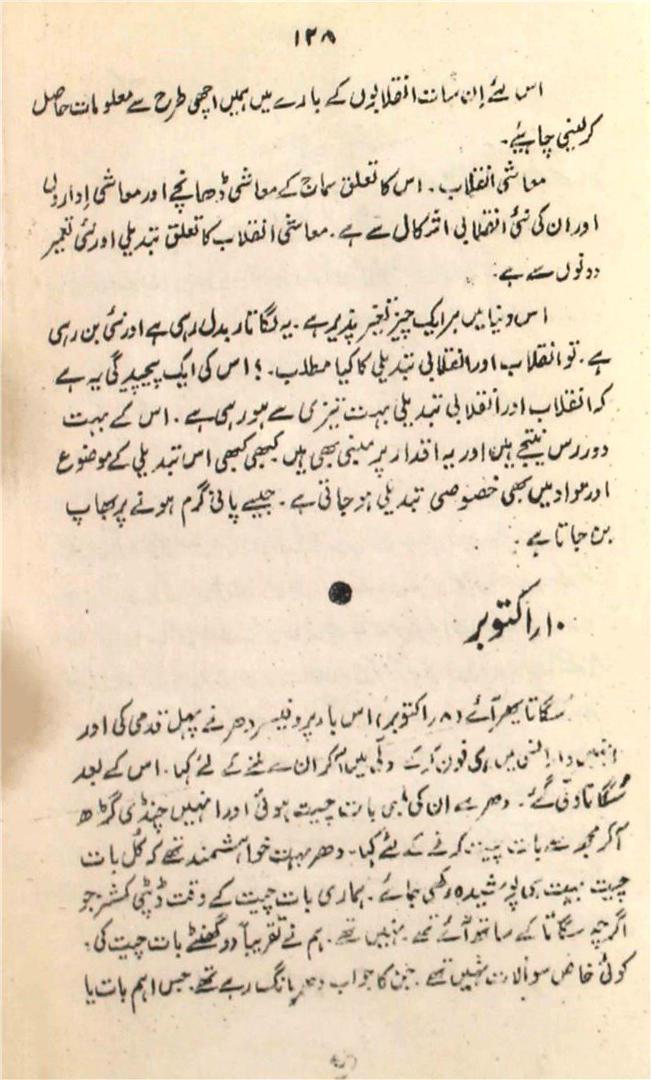 ۱۲۸
اس لئے اِن سات انقلابوں کے بارے میں ہمیں اچھی طرح سے معلومات حاصل
کرلینی چاہیئے۔
معاشی انقلاب۔ اس کا تعلق سماج کے معاشی ڈھانچے اور معاشی اِداروں
اور ان کی نئی انقلابی اشکال سے ہے۔ معاشی انقلاب کا تعلق تبدیلی اور نئی تعمیر
دونوں سے ہے۔
اس دنیا میں ہر ایک چیز تغیر پذیر ہے۔ یہ لگاتار بدل رہی ہے اور نئی بن رہی
ہے۔ تو انقلاب اور انقلابی تبدیلی کا کیا مطلب۔؟ اس کی ایک پیچیدگی یہ ہے
کہ انقلاب اور انقلابی تبدیلی بہت تیزی سے ہو رہی ہے۔ اس کے بہت
دور رس نتیجے ہیں اور یہ اقدار پر مبنی بھی ہیں کبھی کبھی اس تبدیلی کے موضوع
اور مواد میں بھی خصوصی تبدیلی ہو جاتی ہے۔ جیسے پانی گرم ہونے پر بھاپ
بن جاتا ہے۔
۱۰ اکتوبر
سگاتا پھر آئے (۸ اکتوبر) اس بار پروفیسر دھر نے پہل قدمی کی اور
انہیں میں ہی فون کرکے دلی میں آکر ان سے ملنے کے لئے کہا۔ اس کے بعد
سُگاتا دلی گئے۔ دھر سے ان کی لمبی بات چیت ہوئی اور انہیں چنڈی گڑھ
آکر مجھ سے بات چیت کرنے کے لئے کہا۔ دھر بہت خواہشمند تھے کہ کُل بات
چیت بہت ہی پوشیدہ رکھی جائے۔ ہماری بات چیت کے وقت ڈپٹی کمشنر جو
اگرچہ سگاتا کے ساتھ آئے تھے۔ نہیں تھے۔ ہم نے تقریباً دو گھنٹے بات چیت کی۔
کوئی خاص سوالات نہیں تھے۔ جن کا جواب دھر مانگ رہے تھے۔ جس اہم بات یا